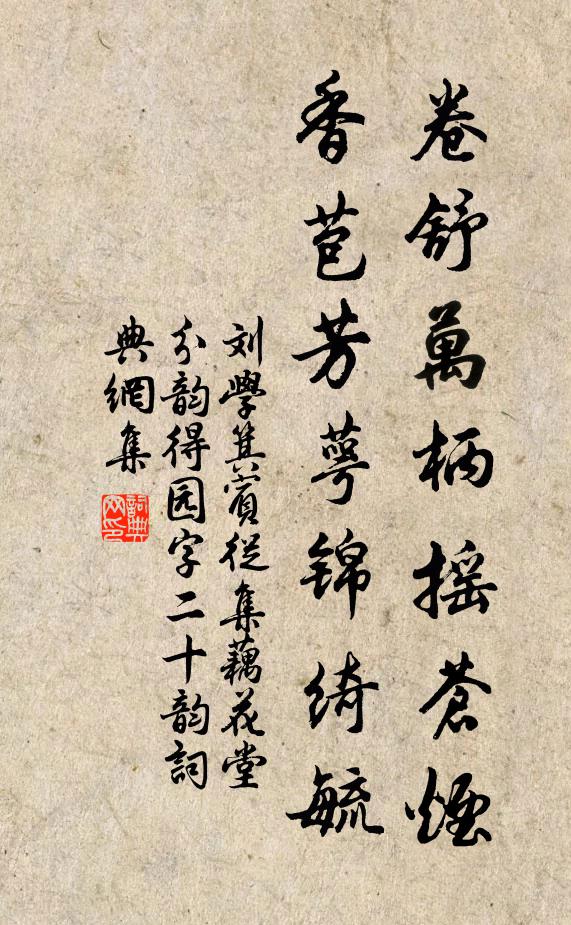 卷舒萬柄摇蒼煙
香苞芳萼錦綺毓
刘學箕賓從集藕花堂
分韵得园字二十韵詞
典網集
詞典
网印